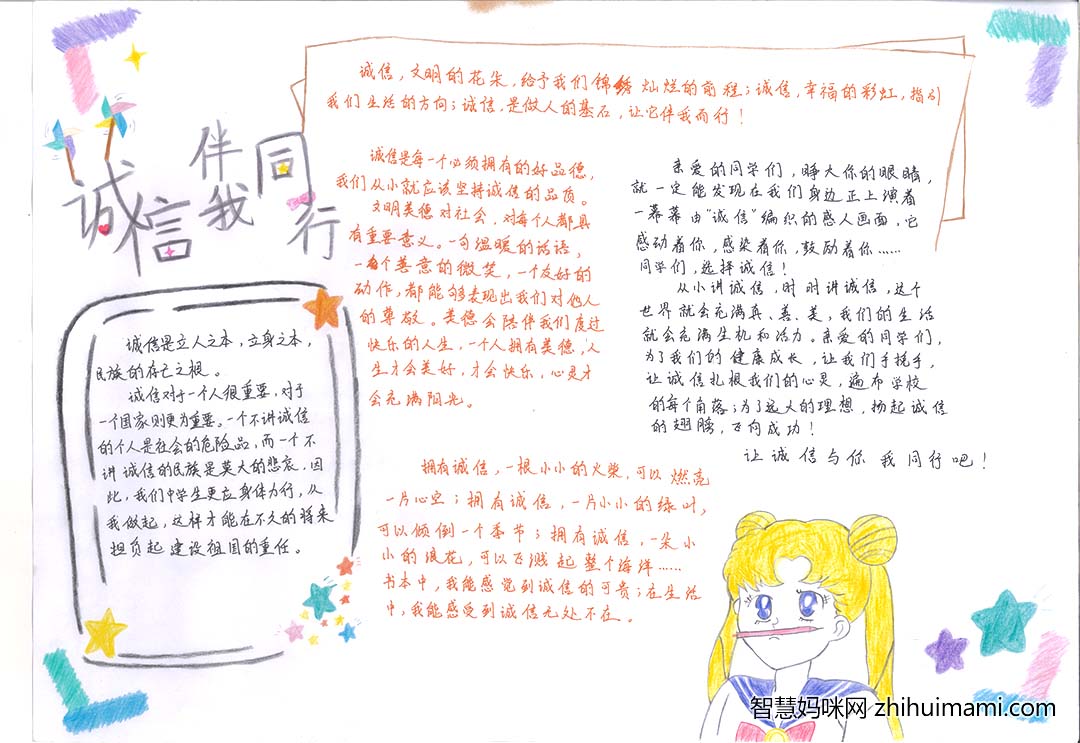 诚信
伴我
同行
诚信，文明的花朵，给予我们锦绣灿烂的前程；诚信，幸福的彩虹，指引
我们生活的方向；诚信，是做人的基石，让它伴我而行！
诚信是立人之本，立身之本，
民族的存亡之根。
诚信对于一个人很重要，对于
一个国家则更为重要。一个不讲诚信
的个人是社会的危险品，而一个不
讲诚信的民族是莫大的悲哀，因
此，我们中学生更应身体力行，从
我做起，这样才能在不久的将来
担负起建设祖国的重任。
诚信是每一个必须拥有的好品德，
我们从小就应该坚持诚信的品质。
文明美德对社会，对每个人都具
有重要意义。一句温暖的话语，
一个善意的微笑，一个友好的
动作，都能够表现出我们对他人
的尊敬。美德会陪伴我们度过
快乐的人生，一个人拥有美德，人
生才会美好，才会快乐，心灵才
会充满阳光。
亲爱的同学们，睁大你的眼睛，
就一定能发现在我们身边正上演着
一幕幕由“诚信”编织的感人画面，它
感动着你，感染着你，鼓励着你……
同学们，选择诚信！
从小讲诚信，时时讲诚信，这个
世界就会充满真、善、美，我们的生活
就会充满生机和活力。亲爱的同学们，
为了我们的健康成长，让我们手挽手，
让诚信扎根我们的心灵，遍布学校
的每个角落；为了远大的理想，扬起诚信
的翅膀，飞向成功！
让诚信与你我同行吧！
拥有诚信，一根小小的火柴，可以燃亮
一片心空；拥有诚信，一片小小的绿叶，
可以倾倒一个季节；拥有诚信，一朵小
小的浪花，可以飞溅起整个海洋……
书本中，我能感觉到诚信的可贵；在生活
中，我能感受到诚信无处不在。
智慧妈咪网 zhihuimami.com